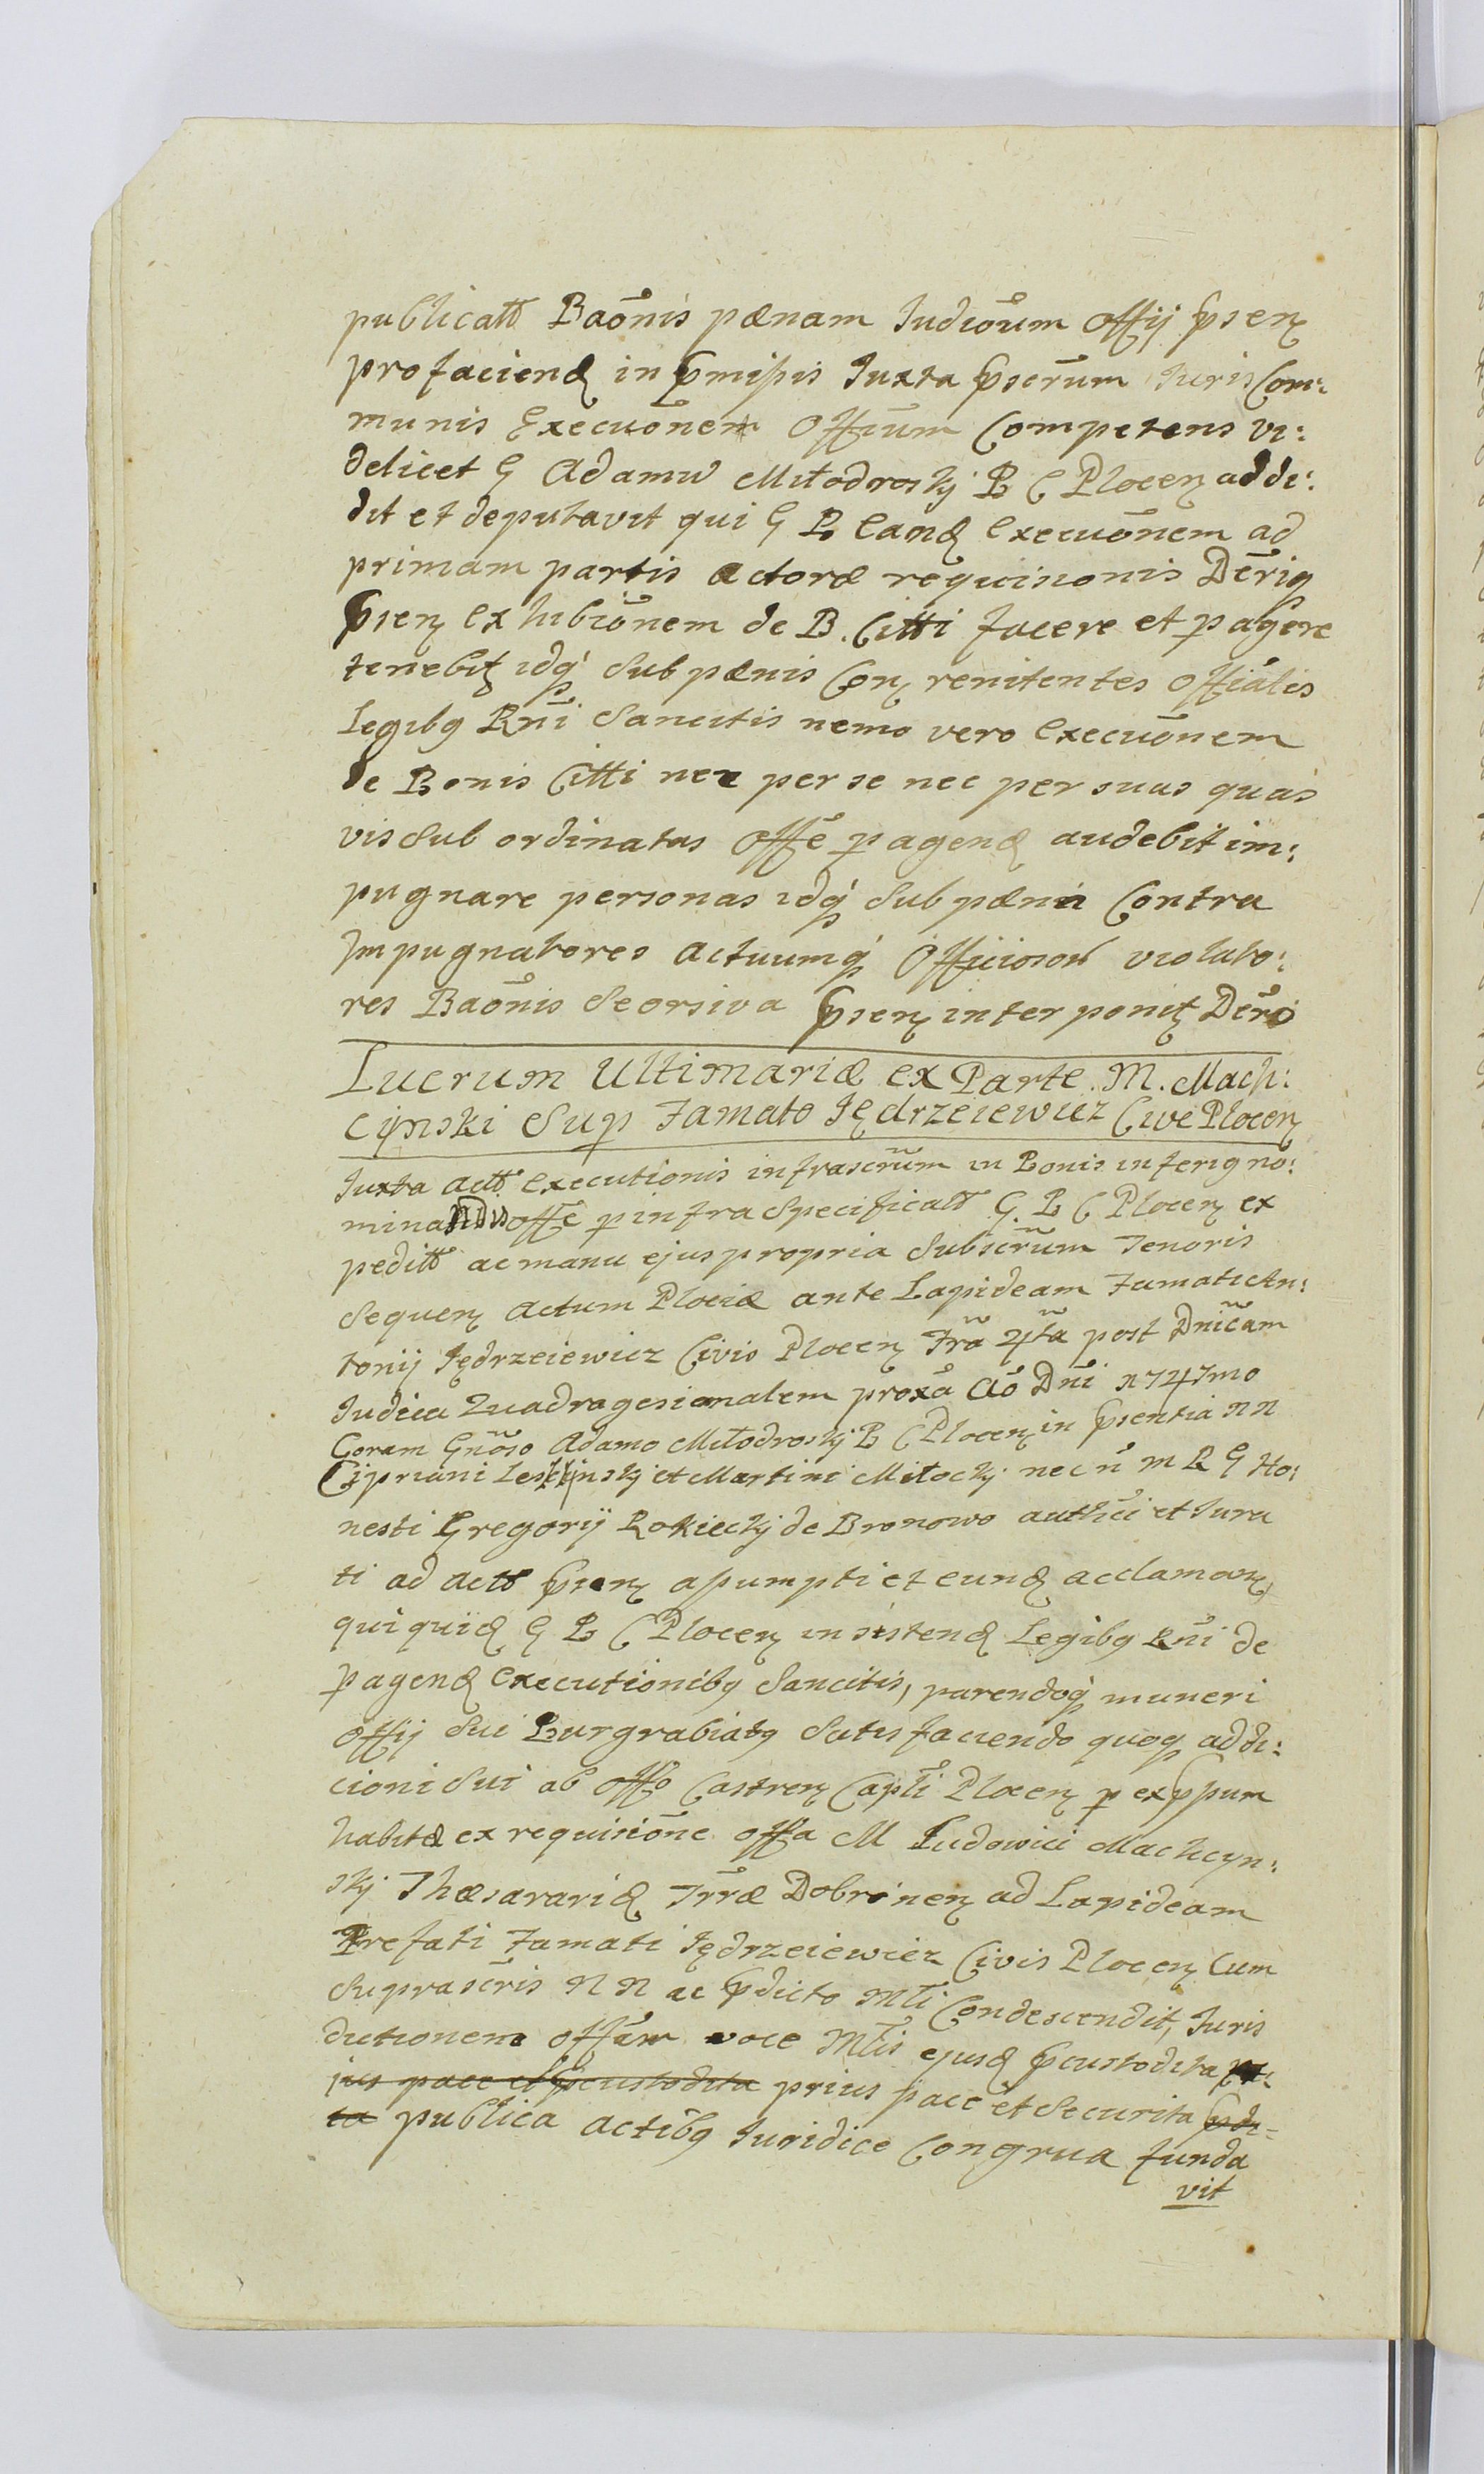 publicatt Baõnis pænam Iudiõum Offij Psen
profaciend in Pmissis Iuxta Pscrūm Iuris Com:
munis Execuõnem Offiūm Competens vi:
delicet G Adamū Miłodroskj B C Plocen addi:
dit et deputavit qui G B eand Execuõnem ad
primam partis actoræ requisionis Dēriq
Psen exhibiõnem de B. Citti facere et pagere
tenebit idq' sub pænis Con renitentes Offiālis
Legibq Rñi Sancitis nemo vero Execuõnem
de Bonis Citti nec per se nec per suas quas
vis Sub ordinatas Offē pagend audebit im:
pugnare personas idq' Sub pænis Contra
Impugnatores actuumq' Officioson violato:
res Baõnis Seorsiva Psen interponit Dērō
Lucrum Ultimariæ ex Parte M. Mach:
cijnski Sup Famato Jędrzeiewicz Cive Plocen
Iuxta actt executionis infrascrūm in Bonis inferig no:
minandis offē p infra Specificatt G. B C Plocen ex
peditt ac manu ejus propria Subscrūm Tenoris
Sequen Actum Plociæ ante Lapideam Famati An:
tonij Jędrzeiewicz Civis Plocen Frã 4tã post Dnicãm
Iudica Quadragesimalem proxã Aõ Dñi 1747mo
Coram Gnõso Adamo Miłodroskj B C Plocen in Psentia NN
Cijpriani Lesczinskj et Martini Miłockj nec ñ M R G Ho:
nesti Gregorij Rokieckj de Bronowo authci et Iura
ti ad actt Psen assumpti et eund acclaman
qui quid G B C Plocen insistend Legibq Rñi de
pagend executionibq Sancitis, parendoq' muneri
Offij Sui Burgrabiatq Satisfaciendo quoq addi:
cioni Sui ab Offo Castren Capli Plocen p exPpum
habitæ ex requisiõne offa M Ludowici Machcyn:
skj Thæsararid Trræ Dobrinen ad Lapideam
Prefati Famati Jędrzeiewicz Civis Plocen Cum
Suprascris NN ac Pdicto Mli Condescendit, Iuris
dictionem offãm voce Mlis ejusd Pcustodita
jus pace et Pcustodita prius pace et Securita Pdi=
ta publica actibq Iuridice Congrua funda
vit